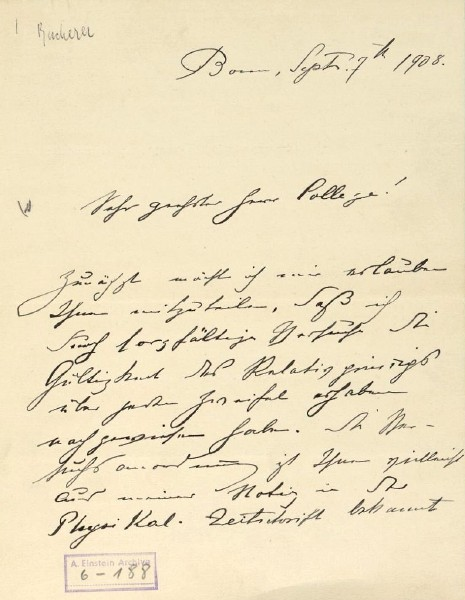 Bucherer
Bonn, Sept. 7th 1908.
Sehr geehrter Herr College!
Zunächst möcht ich mir erlauben
Ihnen mitzuteilen, daß ich
durch sorgfältige Versuche die
Gültigkeit des Relativprinzips
über jeden Zweifel erhaben
nachgewiesen habe. Die Ver-
suchsanordnung ist Ihnen vielleicht
aus meiner Notiz in der
Physikal. Zeitschrift bekannt
A. Einstein Archive
6-188